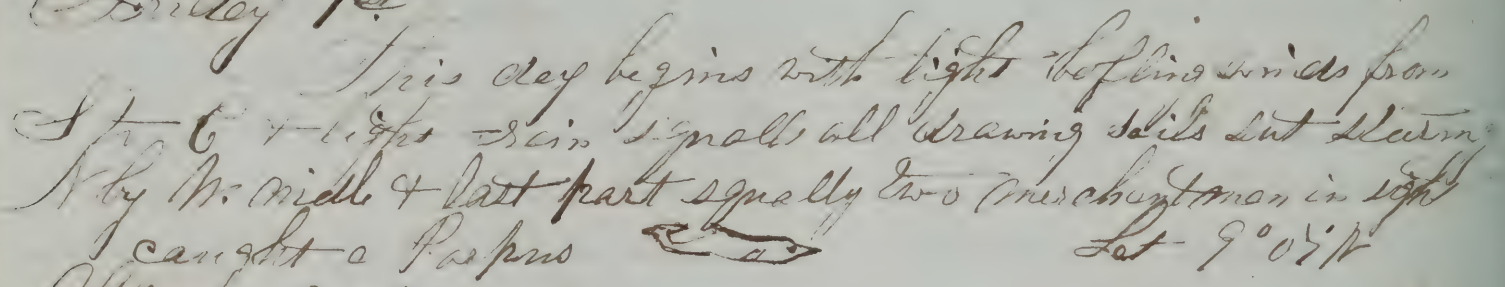 Friday 1st
This day begins with light bafling winds from
S to E & light rain squalls all drawing sails sut stearing
N by W. Midle & last part squally two merchantman in sight
caught a Porpus Lat 9° 05' N